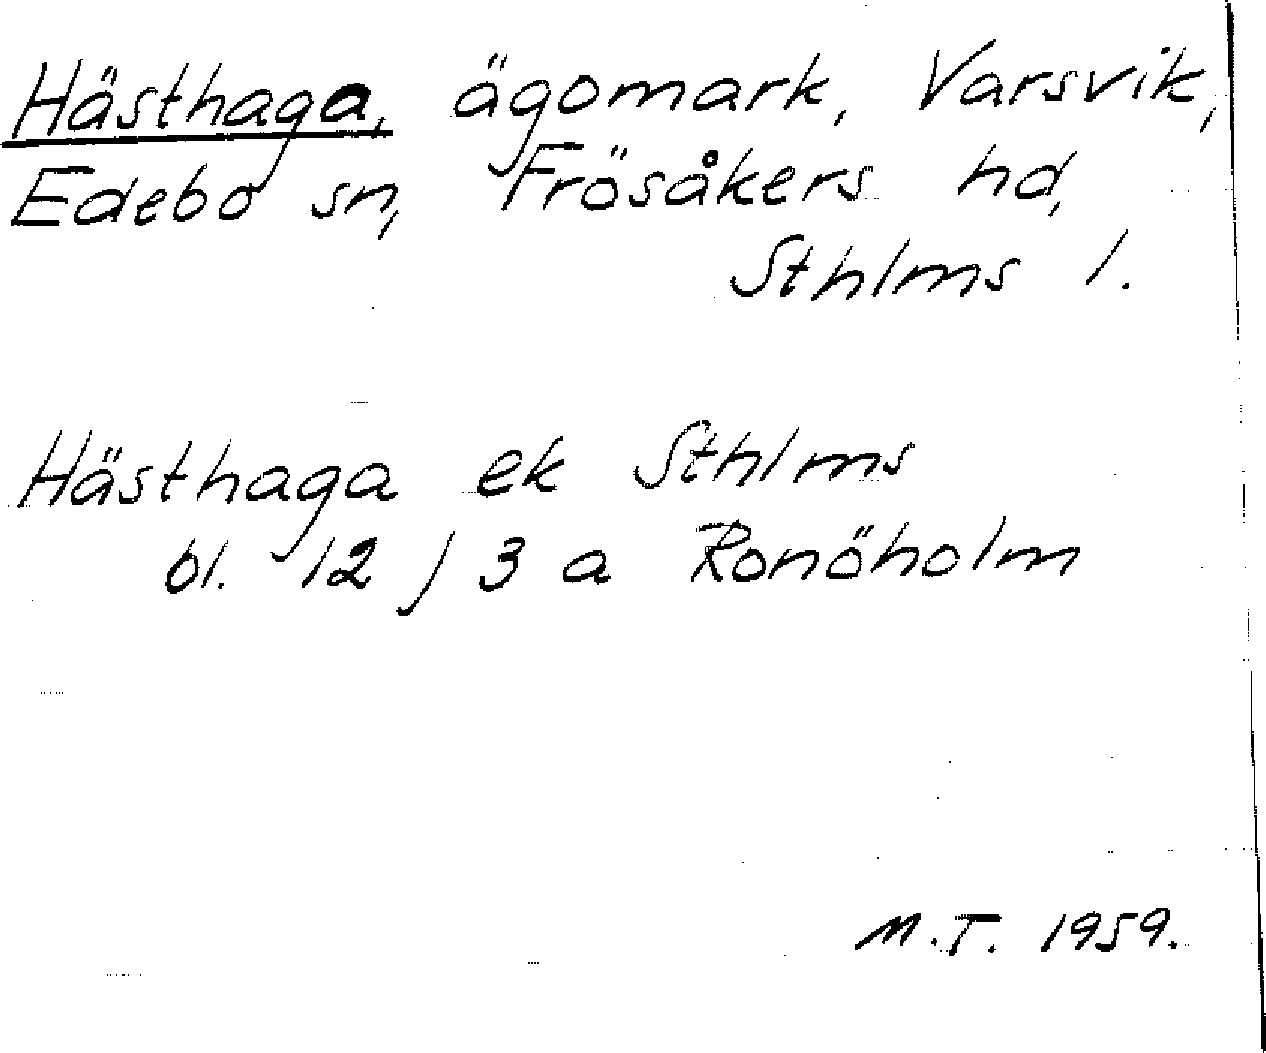 Hästhaga, ägomark, Varsvik,
Edebo sn, Frösåkers hd,
Sthlms l.
Hästhaga ek Sthlms
bl. 12 J 3 a Ronöholm
M.T. 1959.